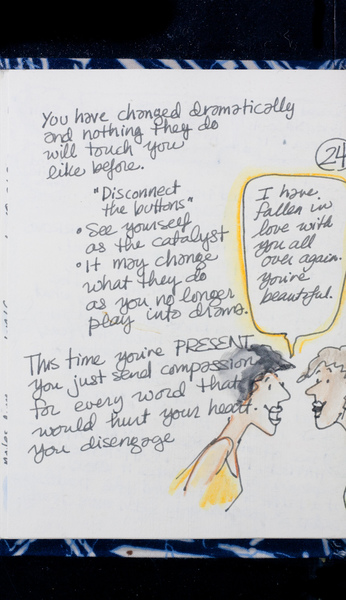 You have changed dramatically
and nothing they do
will touch you
like before.
"Disconnect
the buttons"
• See yourself
as the catalyst
• It may change
what they do
as you no longer
play into drama.
This time you're PRESENT.
You just send compassion
for every word that
would hurt your heart.
You disengage
24
I have
fallen in
love with
you all
over again.
You're
beautiful.